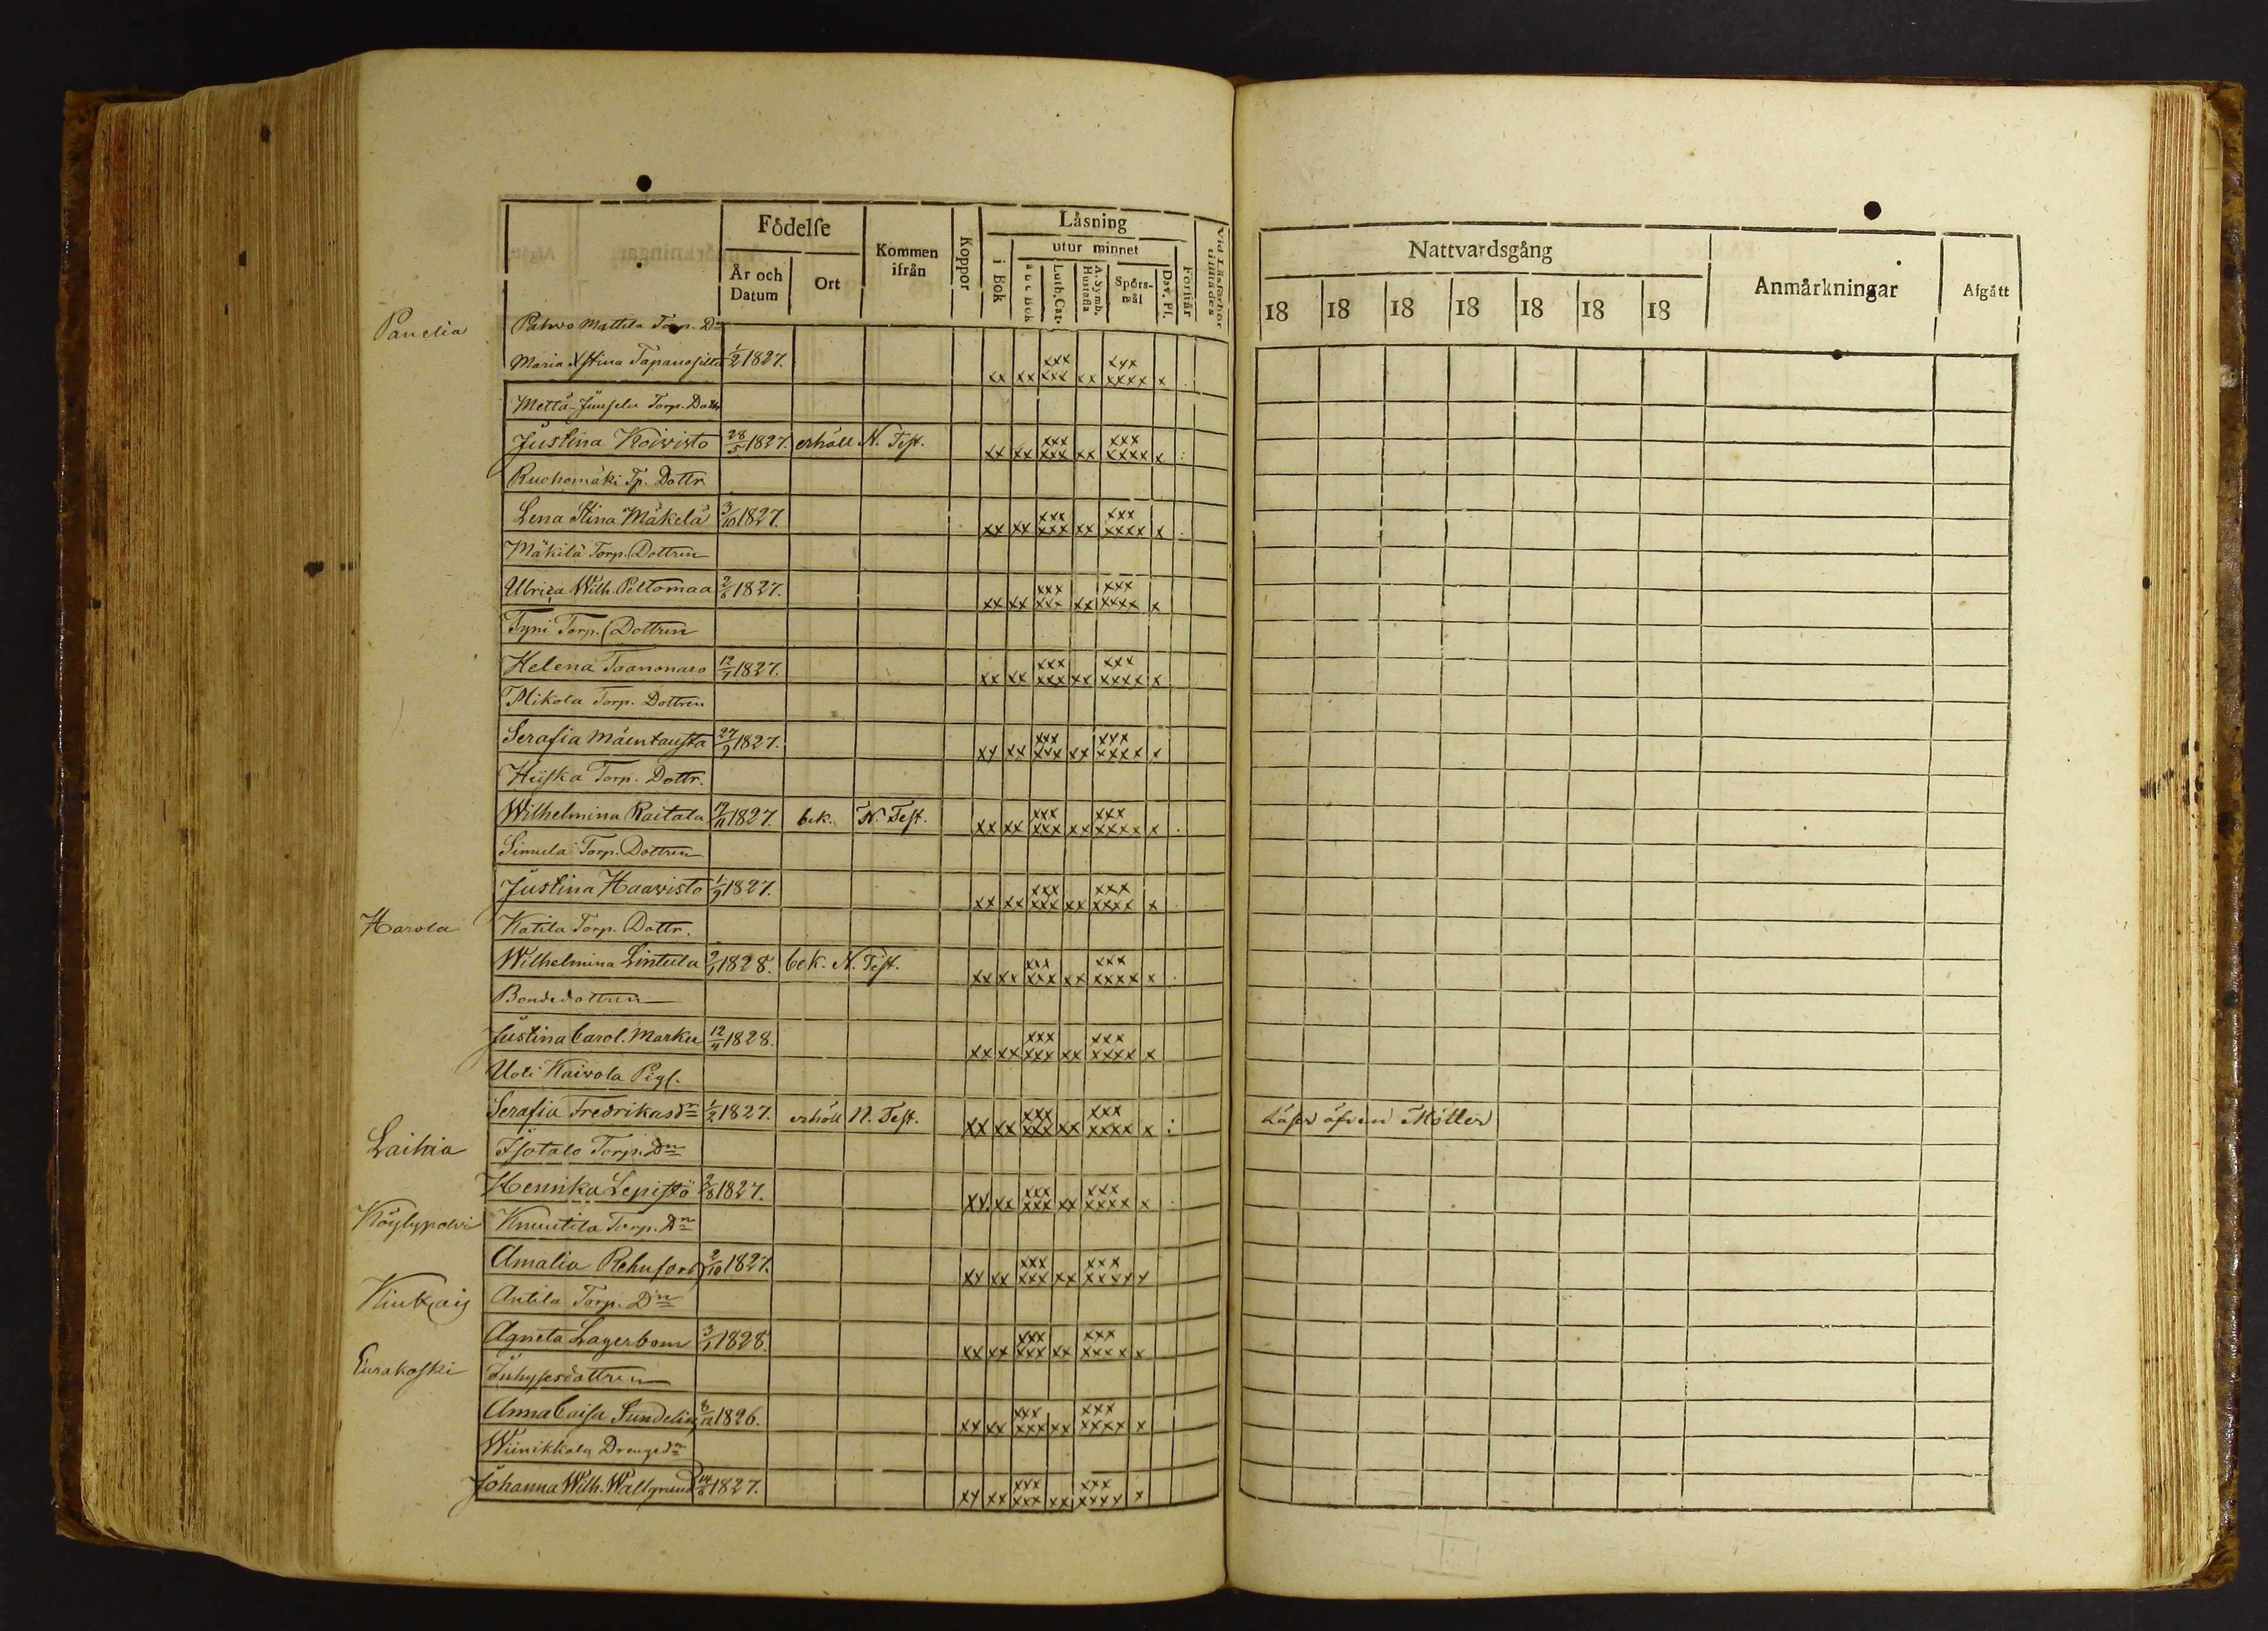 Födelse
Kommen ifrån
Koppor
Läsning
Vid Läsförhör tillstädes
År och Datum
Ort
i Bok
utur minnet
a b c Bok
Luth. Cat.
A. Symb. Hustafla
Spörsmål
Dav. Ps.
Förstår
Nattvardsgång
Anmärkningar
Afgått
18 18 18 18 18 18 18
Panelia Pahvo Mattila Torp. Dn
Maria Stina Tapanasilta 1/2 1827. xx xx xxx xxx xx xxx xxxx x
Mettä-Juusela Torp. Dottr
Justina Koivisto 28/5 1827. erhåll N. Test. xx xx xxx xxx xx xxx xxxx x
Ruohomäki Tp. Dottr
Lena Stina Mäkelä 3/10 1827. xx xx xxx xxx xx xxx xxxx x
Mäkilä Torp. Dottren
Ulrica Wilh. Peltomaa 2/6 1827. xx xx xxx xxx xx xxx xxxx x
Tyni Torp. Dottren
Helena Taanonaro 12/7 1827. xx xx xxx xxx xx xxx xxxx x
Mikola Torp. Dottren
Serafia Mäentausta 27/9 1827. xx xx xxx xxx xx xxx xxxx x
Heiska Torp. Dottr.
Wilhelmina Raitala 19/11 1827. bek. N. Test. xx xx xxx xxx xx xxx xxxx x
Simula Torp. Dottren
Justina Haavisto 1/9 1827. xx xx xxx xxx xx xxx xxxx x
Harola Katila Torp. Dottr.
Wilhelmina Lintula 9/1 1828. bek. N. Test. xx xx xxx xxx xx xxx xxxx x
Bondedottren
Justina Carol. Marku 12/4 1828. xx xx xxx xxx xx xxx xxxx x
Uoti Kaivola Pigs.
Serafia Fredrikasdr 1/2 1827. erhåll N. Test. xx xx xxx xxx xx xxx xxxx x Läser äfven Möller
Laihia Isotalo Torp. Dn
Henrika Lepistö 2/8 1827. xx xx xxx xxx xx xxx xxxx x
Köylypolvi Knuutila Torp. Dn
Amalia Rehnfors 2/10 1827. xx xx xxx xxx xx xxx xxxx x
Kiukais Antila Torp. Dn
Agneta Lagerbom 3/1 1828. xx xx xxx xxx xx xxx xxxx x
Eurakoski Inhysesdottren
Anna Caisa Sundelin 8/12 1826. xx xx xxx xxx xx xxx xxxx x
Wiinikkala Drengedn
Johanna Wilh. Wallgrund 14/6 1827. xx xx xxx xxx xx xxx xxxx x